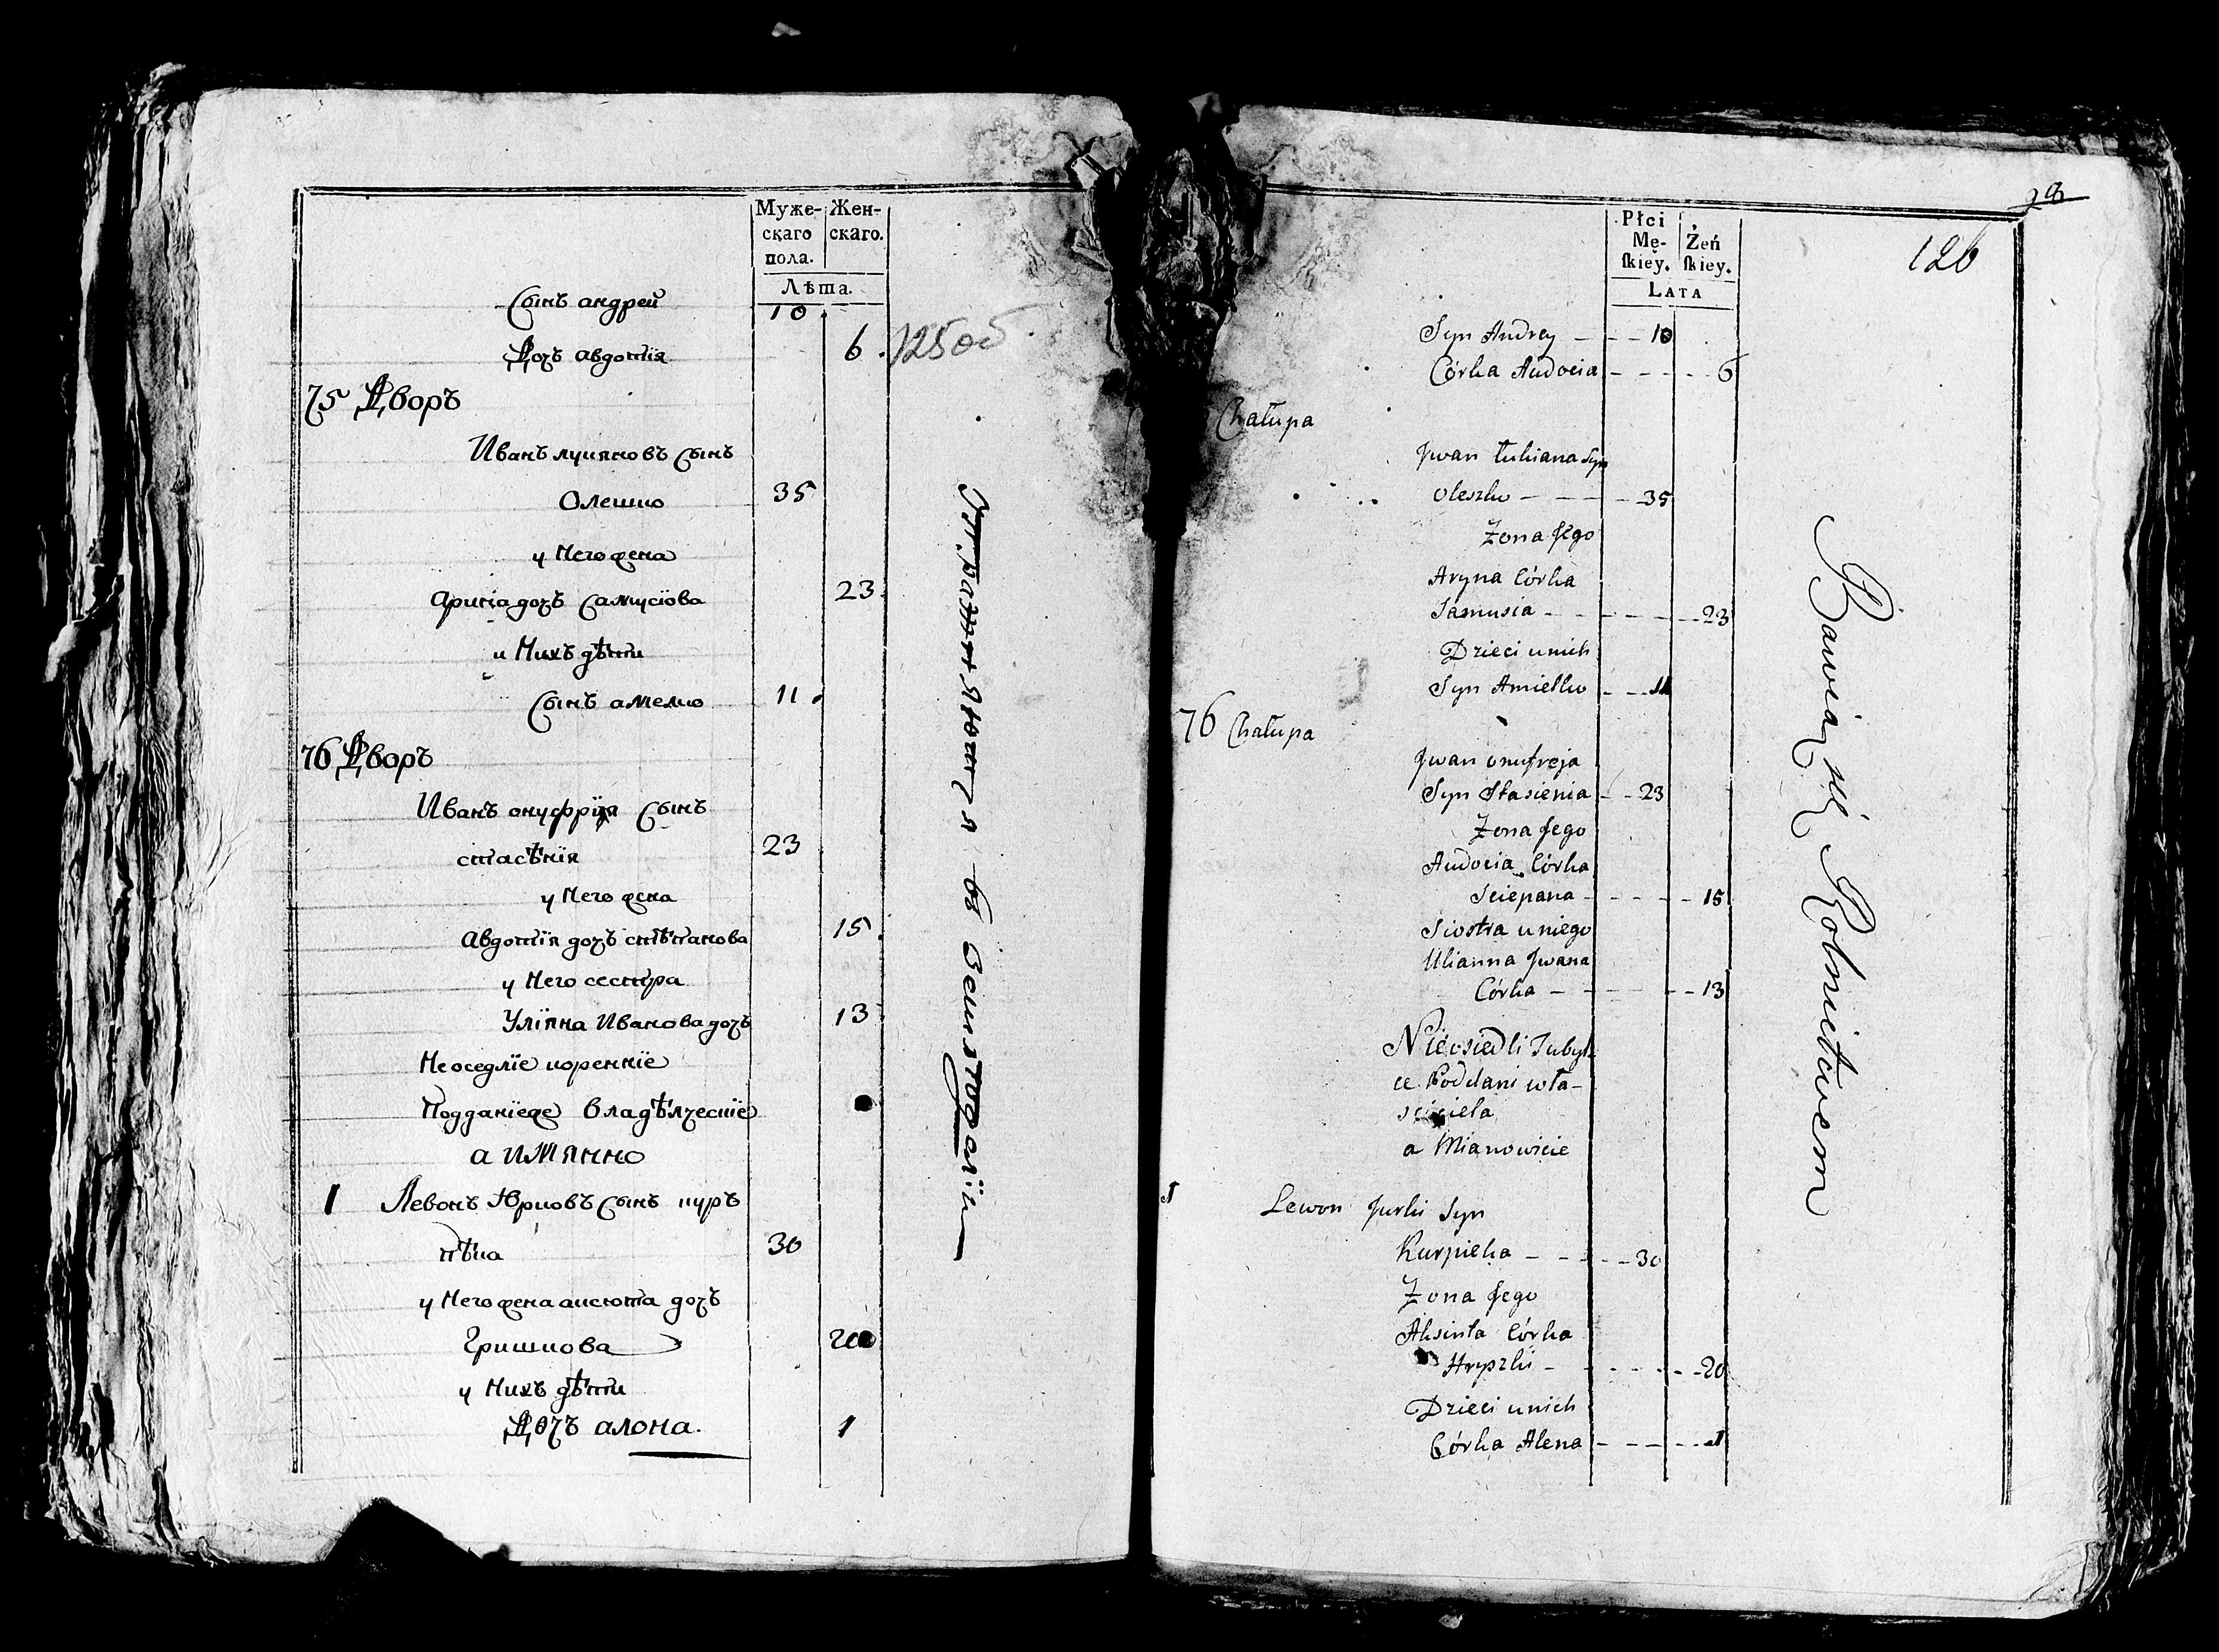 Муже-
скаго
пола.
Жен-
скаго.
Лѣта.
Сынъ андрей 10
Дочъ авдотїя 6
125об
75 Дворъ
Иванъ лукяновъ Сынъ
Олешко 35
у Него жена
аринїа дочъ Самусїова 23
у Нихъ дѣти
Сынъ амелко 11
76 Дворъ
Иванъ онуфрїя Сынъ
стасѣнїя 23
у Него жена
Авдотїя дочъ стѣпанова 15
у Него сестра
Улїяна Иванова дочъ 13
Неоседлїе кореннїе
Подданїеже владѣлческїе
а имянно
1 Левонъ Юрковъ Сынъ куръ
пѣка 30
у Него жена аксюта дочъ
Гришкова 20
у Нихъ дѣти
Дочъ алона. 1
упражняются въ
Płci
Mę-
skiey.
Żeń
skiey.
LATA
126
Syn Andrey 10
Córka Audocia 6
Chałupa
Jwan Łukiana Syn
Oleszko 35
Żona Jego
Aryna Córka
Samusia 23
Dzieci unich
Syn Amielko 11
76 Chałupa
Jwan onufreja
Syn Stasienia 23
Żona Jego
Audocia Córka
Sciepana 15
Siostra uniego
Ulianna Jwana
Córka 13
Nieosiedli Tubyl
ce Poddani wła-
sciciela
a Mianowicie
1 Lewon Jurki Syn
Kurpieka 30
Żona Jego
Aksinta Córka
Hryszki 20
Dzieci unich
Córka Alena 1
Bawią się Rolnictwem